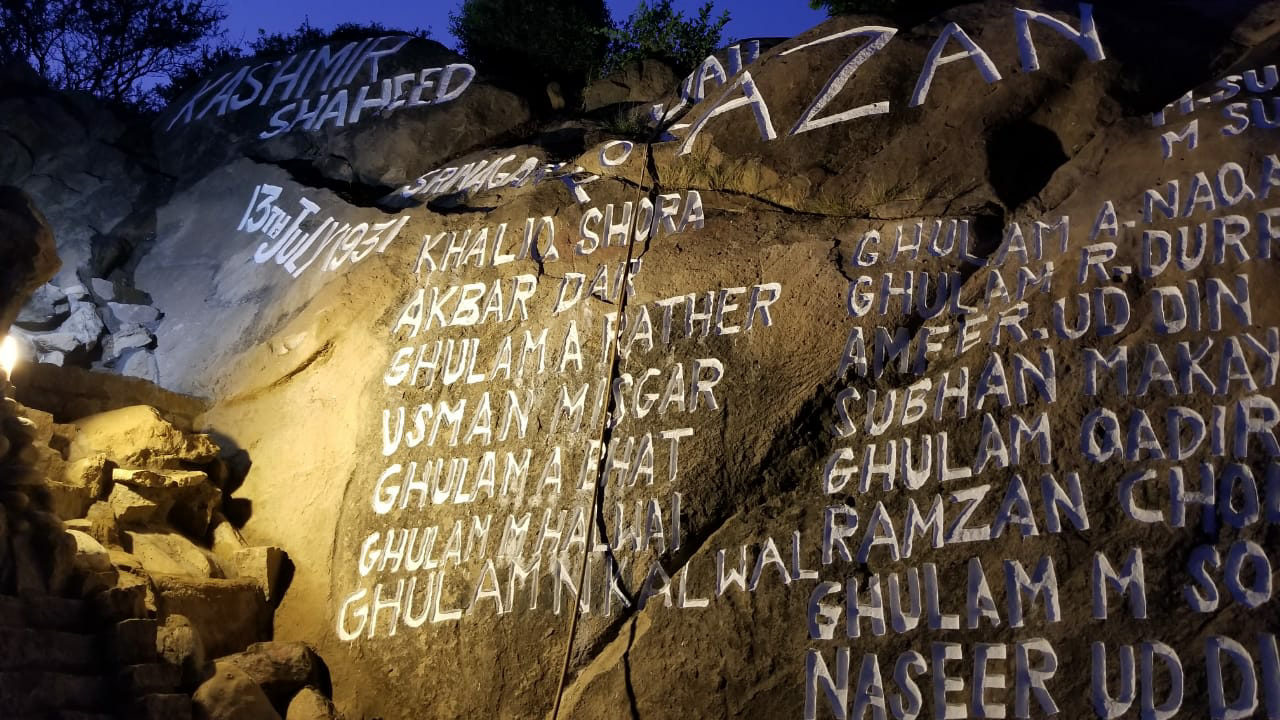 KASHMIR
SHAHEED
AZAN
SRINAGAR
13TH July 1931
KHALIQ SHORA
AKBAR DAR
GHULAM A RATHER
USMAN MISGAR
GHULAM A BHAT
GHULAM M HALWAI
GHULAM N KALWAL
M. SU
M SU
GHULAM A. NAQA
GHULAM R. DURR
AMEER. UD DIN
SUBHAN MAKAY
GHULAM QADIR
RAMZAN CHO
GHULAM M SO
NASEER UD DI